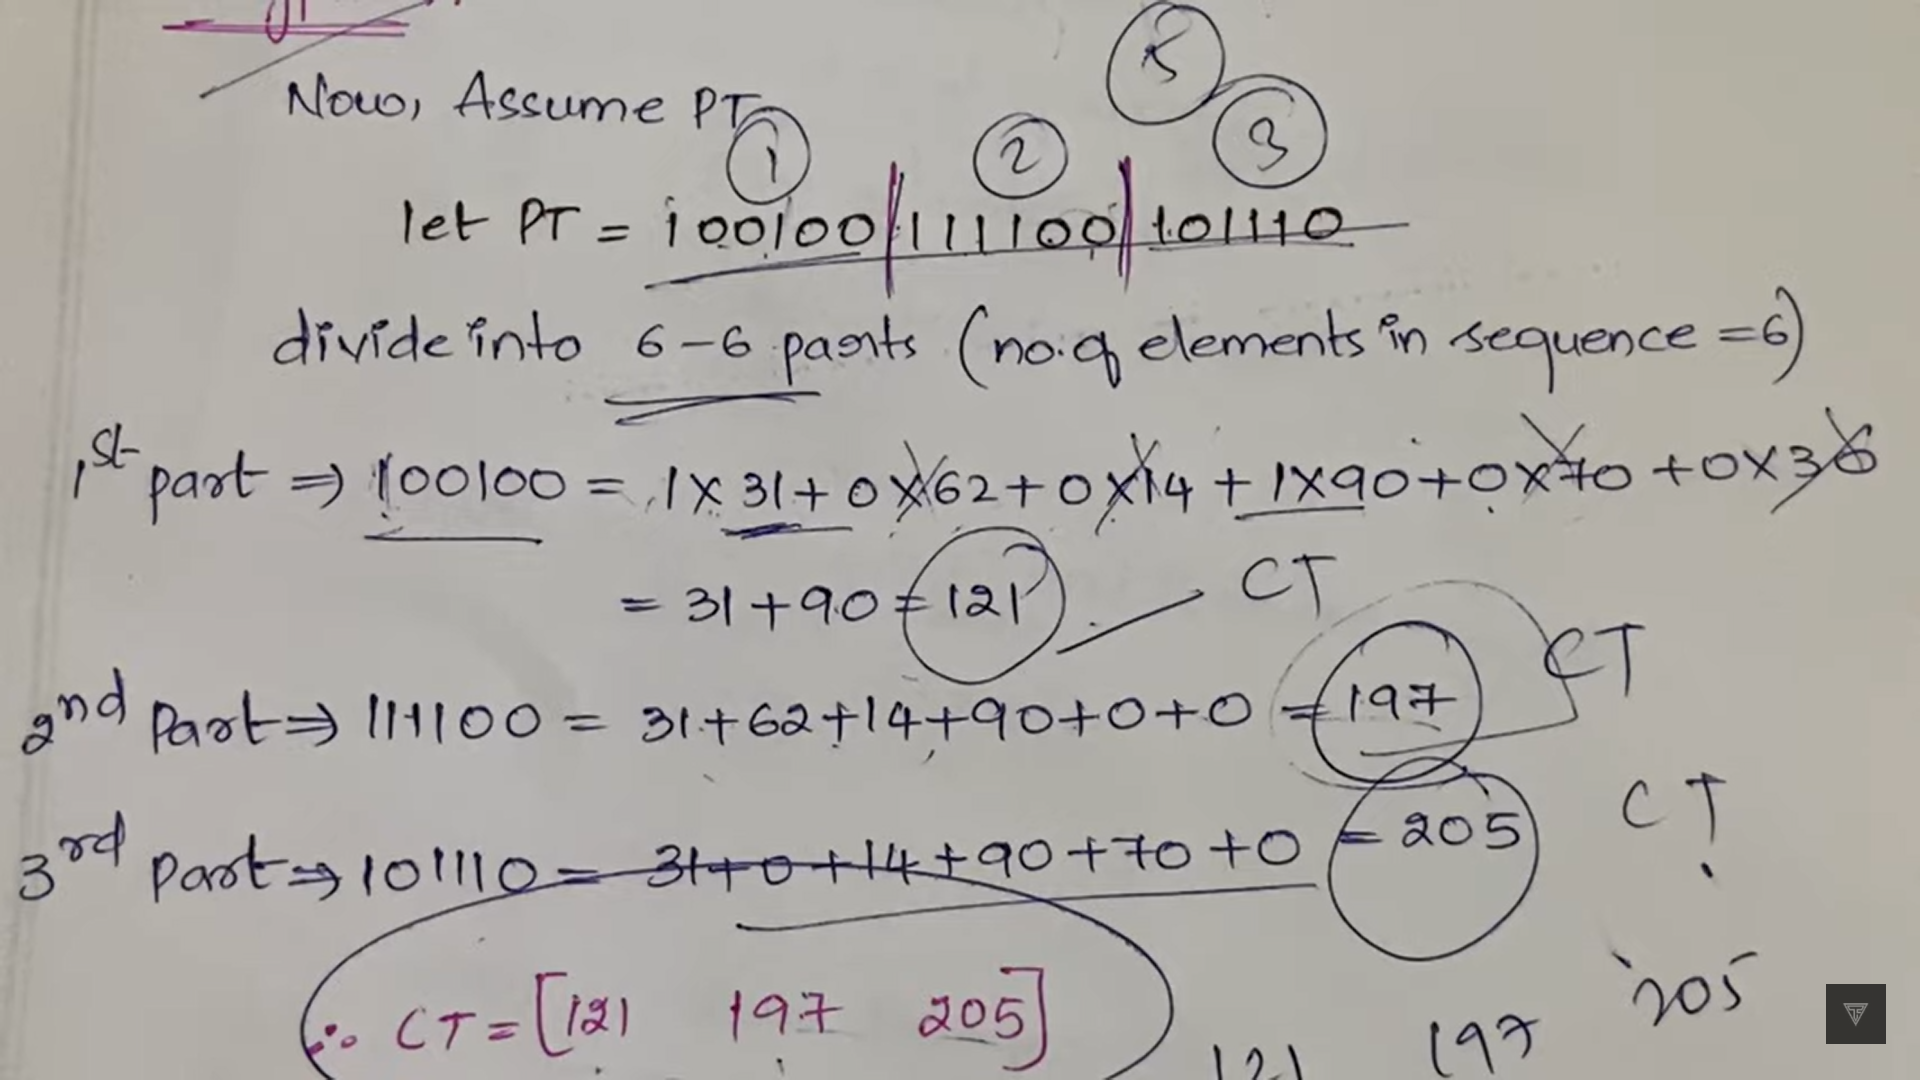 Now, Assume PT
① ② 5 3
let PT = 100100|111100|101110
divide into 6-6 parts (no. of elements in sequence = 6)
1st part ⇒ 100100 = 1 x 31 + 0 x 62 + 0 x 14 + 1 x 90 + 0 x 70 + 0 x 36
= 31 + 90 = 121 CT
2nd Part ⇒ 111100 = 31 + 62 + 14 + 90 + 0 + 0 = 197 CT
3rd Part ⇒ 101110 = 31 + 0 + 14 + 90 + 70 + 0 = 205 CT
∴ CT = [121 197 205]
121 197 205